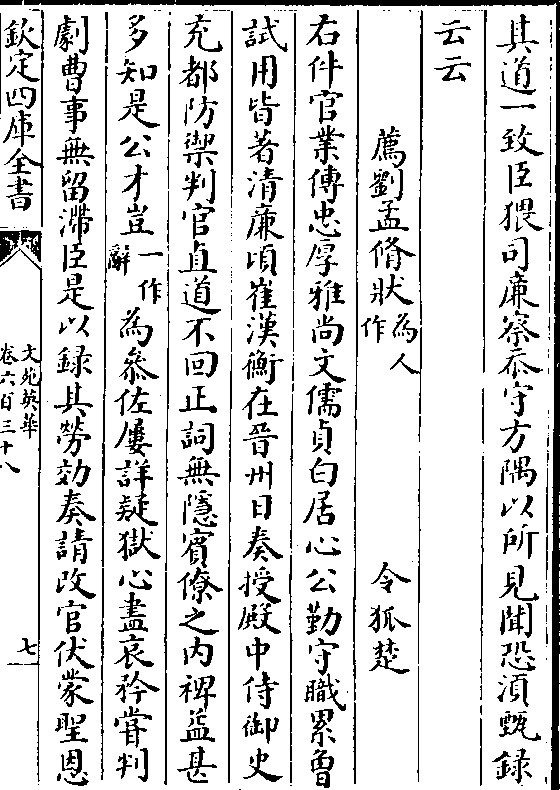 其道一致臣猥司廉察忝守方隅以所見聞恐湏甄錄
云云
薦劉孟脩狀為人作 令狐楚
右件官業傳忠厚雅尚文儒貞白居心公勤守職累曾
試用皆著清廉頃崔漢衡在晉州日奏授殿中侍御史
充都防禦判官直道不回正詞無隱賓僚之内裨益甚
多知是公才豈一作辭為叅佐屢詳疑獄心盡哀矜嘗判
劇曹事無留滯臣是以錄其勞効奏請改官伏蒙聖恩
欽定四庫全書
文苑英華
卷六百三十八
七